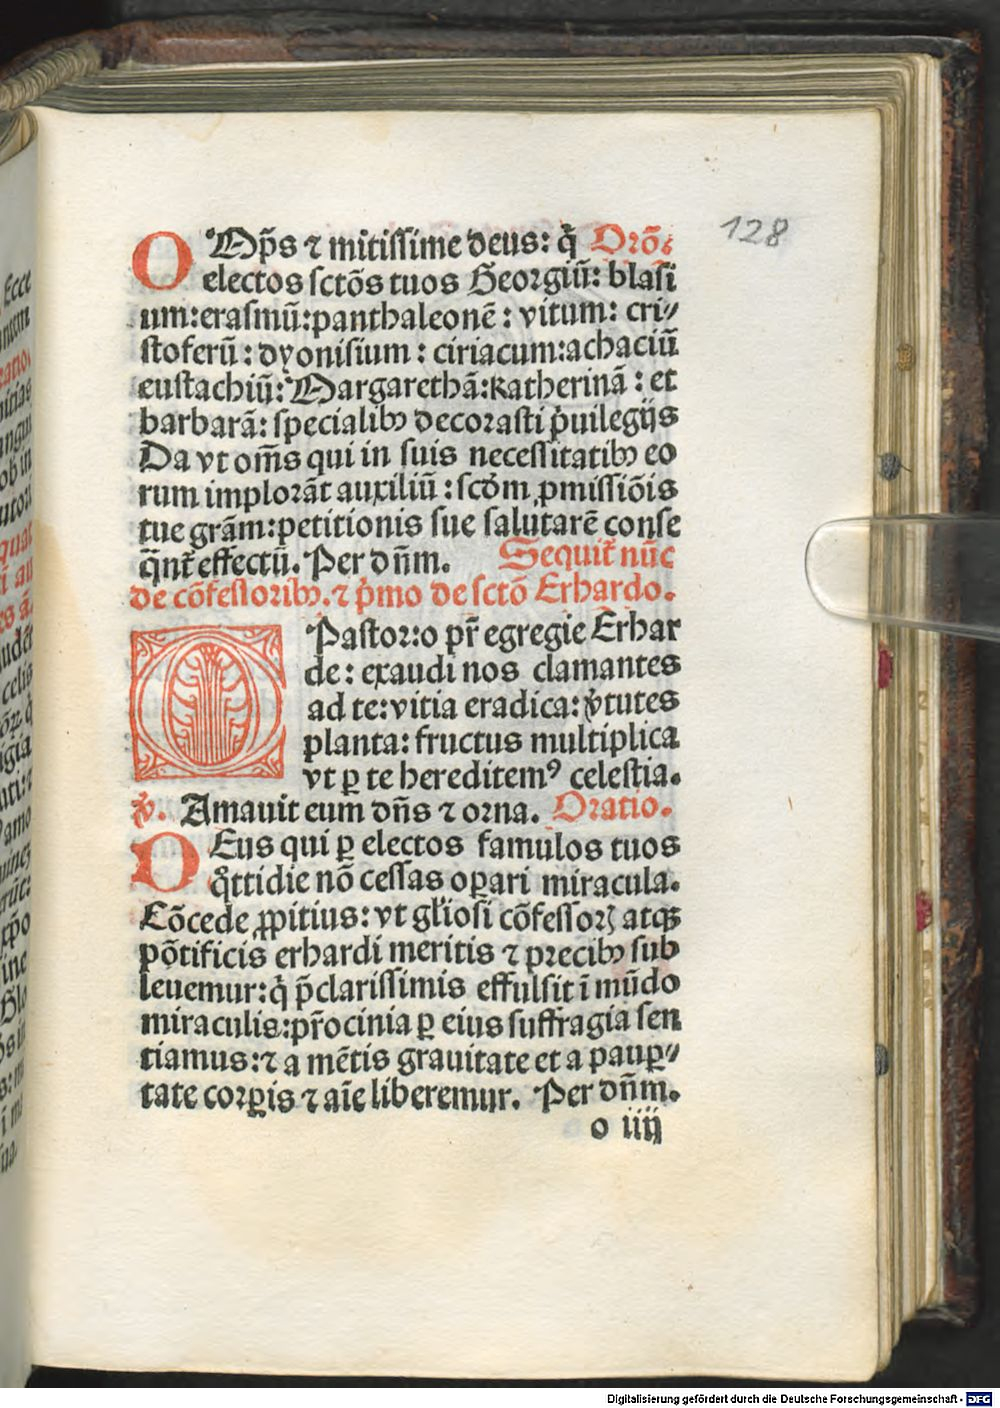 128
OMp̄s ⁊ mitissime deus: q̇ Orō.
electos sctōs tuos Georgiū: blasi
um: erasmū: panthaleonē: vitum: cri-
stoferū: dyonisium: ciriacum: achaciū
eustachiū: Margarethā: Katherinā: et
barbarā: specialibꝫ decorasti p̓uilegijs
Da vt om̄s qui in suis necessitatibꝫ eo
rum implorāt auxiliū: scd̓m ꝓmissiōis
tue grām: petitionis sue salutarē conse
q̄nt᷑ effectū. Per dn̄m. Sequit᷑ nūc
de cōfessoribꝫ. ⁊ p̓mo de sctō Erhardo.
O Pastor: o pr̄ egregie Erhar
de: exaudi nos clamantes
ad te: vitia eradica: v̓tutes
planta: fructus multiplica
vt ꝑ te hereditemꝰ celestia.
℣. Amauit eum dn̄s ⁊ orna. Oratio.
DEus qui ꝑ electos famulos tuos
q̊ttidie nō cessas oꝑari miracula.
Cōcede ꝓpitius: vt gl̓iosi cōfessoꝝ atqꝫ
pōtificis erhardi meritis ⁊ precibꝫ sub
leuemur: q̇ p̄clarissimis effulsit ī mūdo
miraculis: pr̄ocinia ꝑ eius suffragia sen
tiamus: ⁊ a mētis grauitate et a pauꝑ-
tate corꝑis ⁊ aīe liberemur. Per dn̄m.
o iiij
Digitalisierung gefördert durch die Deutsche Forschungsgemeinschaft - DFG